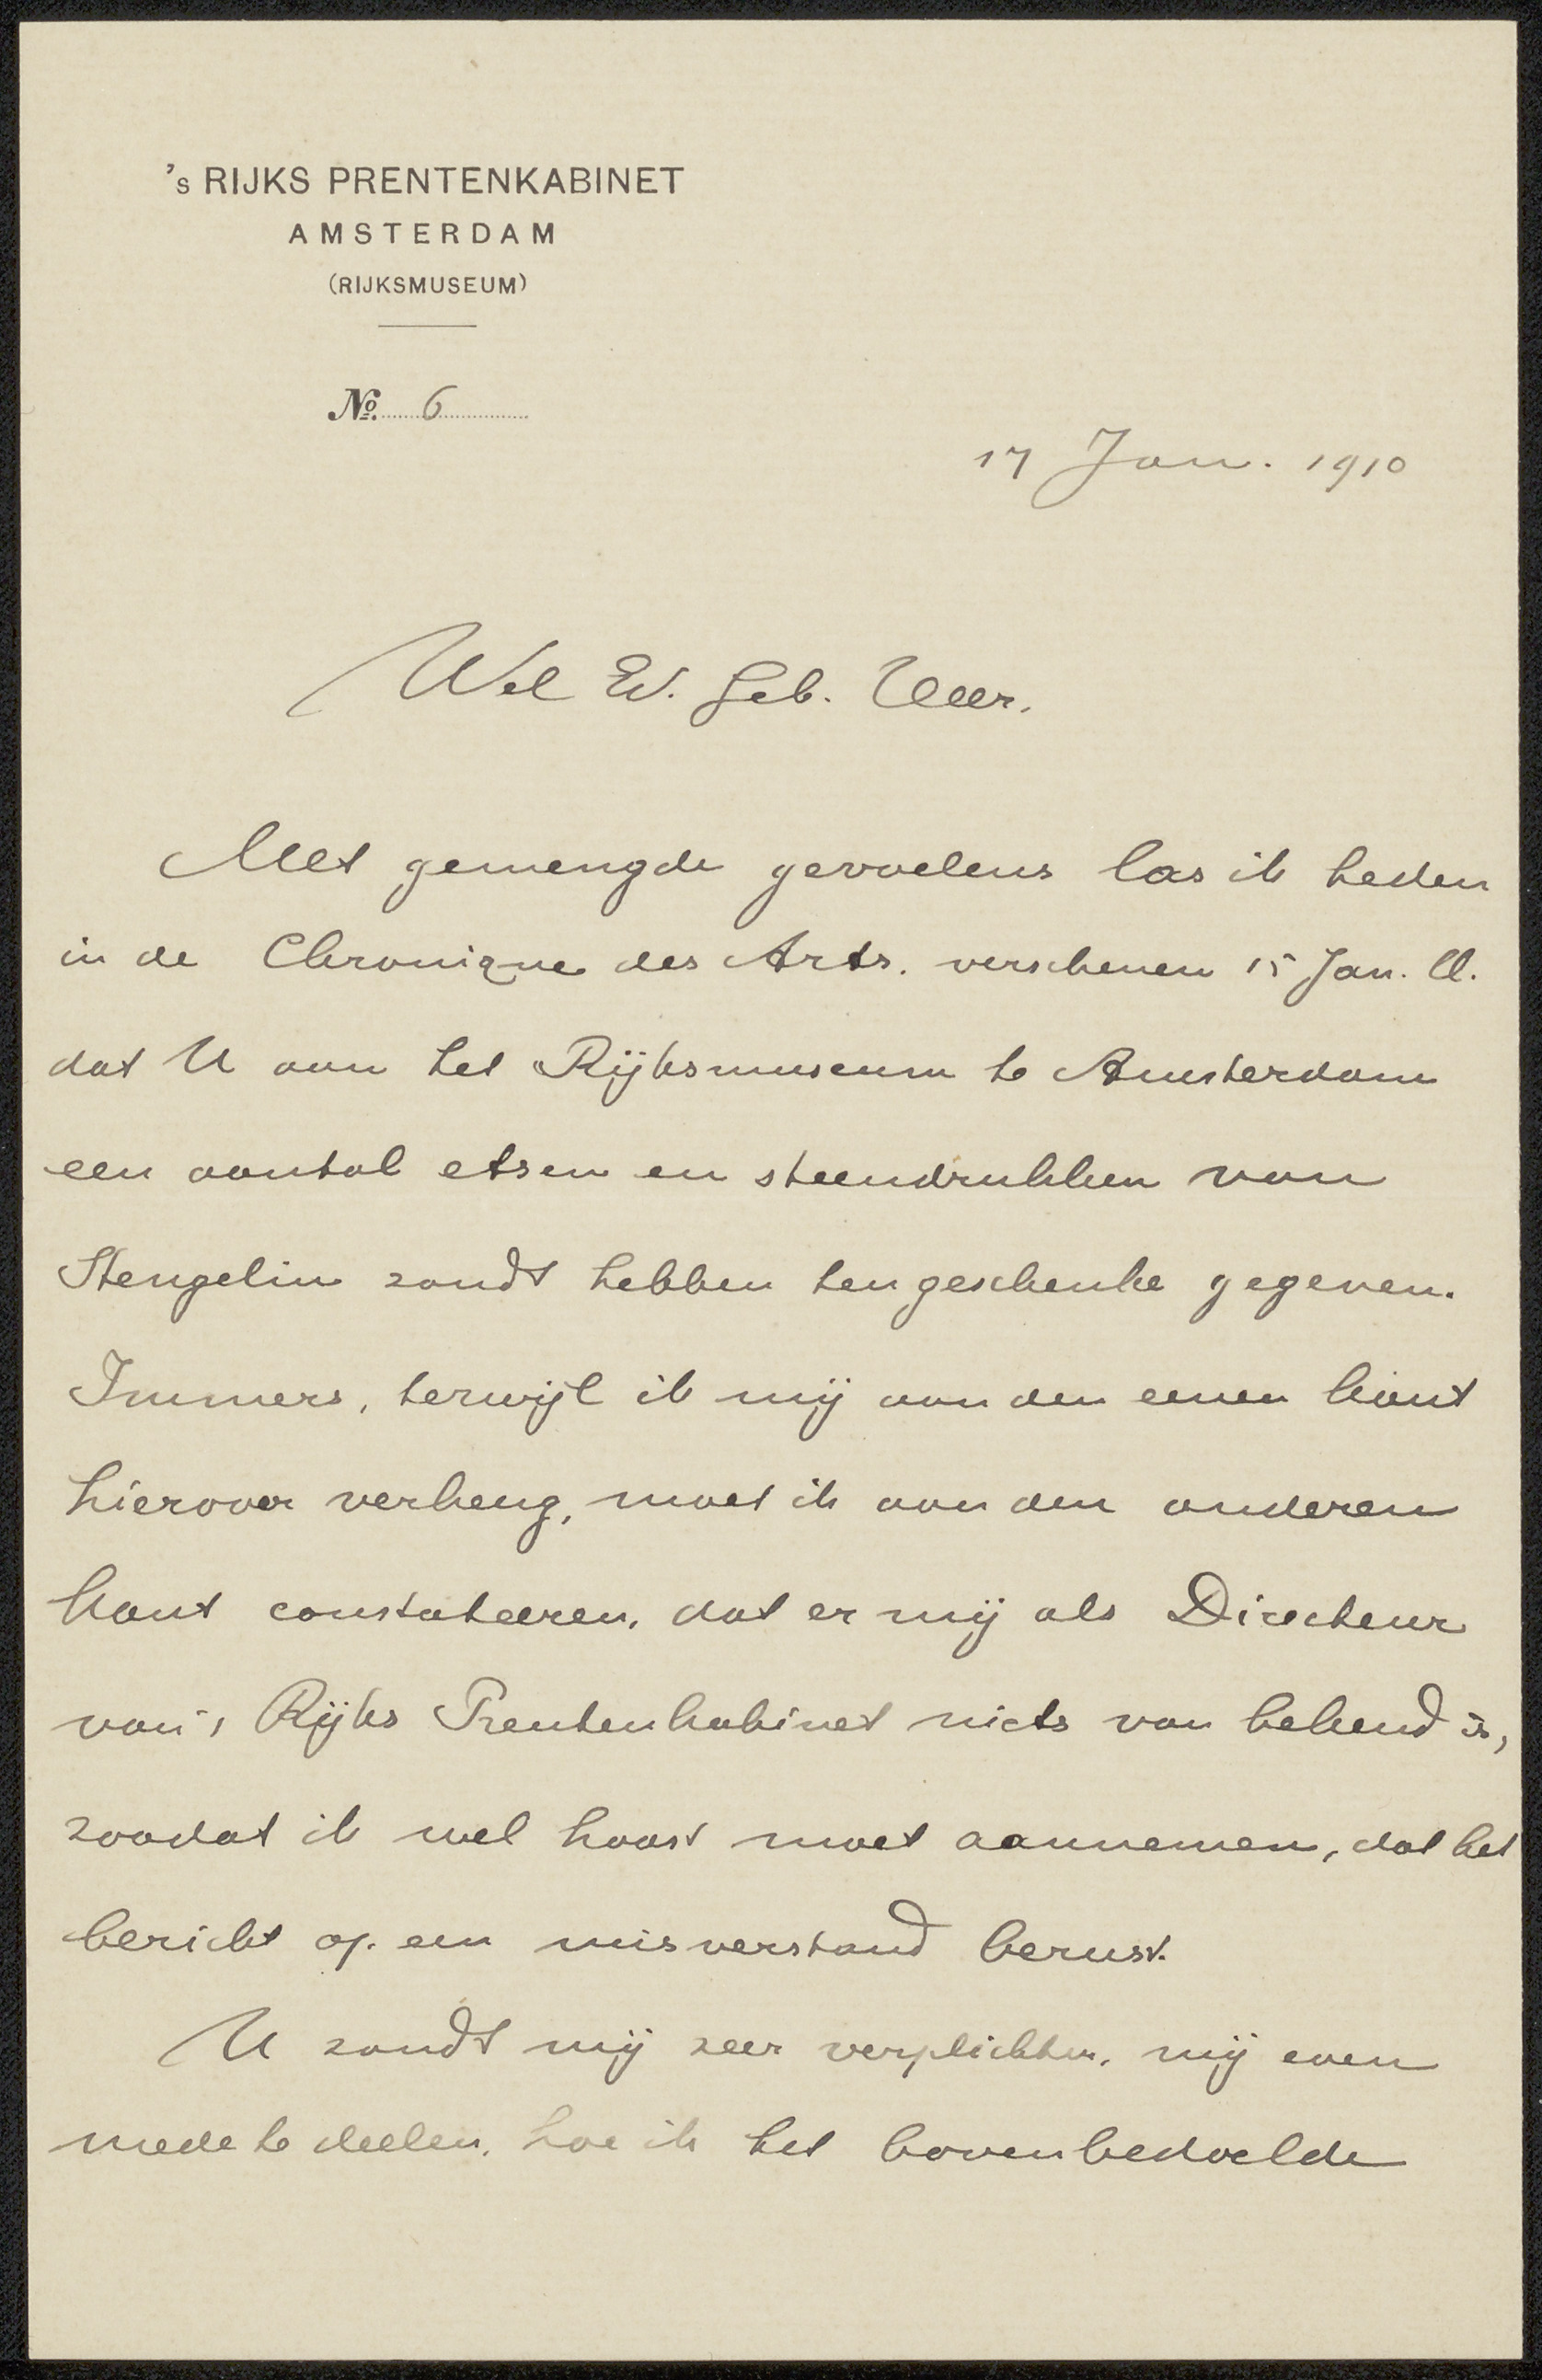 's RIJKS PRENTENKABINET
AMSTERDAM
(RIJKSMUSEUM)
No. 6
17 Jan. 1910
Wel Ed. Geb. Heer.
Met gemengde gevoelens las ik heden
in de Chronique des Arts. verschenen 15 Jan. ll.
dat U aan het Rijksmuseum te Amsterdam
een aantal etsen en steendrukken van
Stengelin zoudt hebben ten geschenke gegeven.
Immers, terwijl ik mij aan den eenen kant
hierover verheug, moet ik aan den anderen
kant constateeren, dat er mij als Directeur
van 's Rijks Prentenkabinet niets van bekend is,
zoodat ik wel haast moet aannemen, dat het
bericht op een misverstand berust.
U zoudt mij zeer verplichten, mij even
mede te deelen, hoe ik het bovenbedoelde